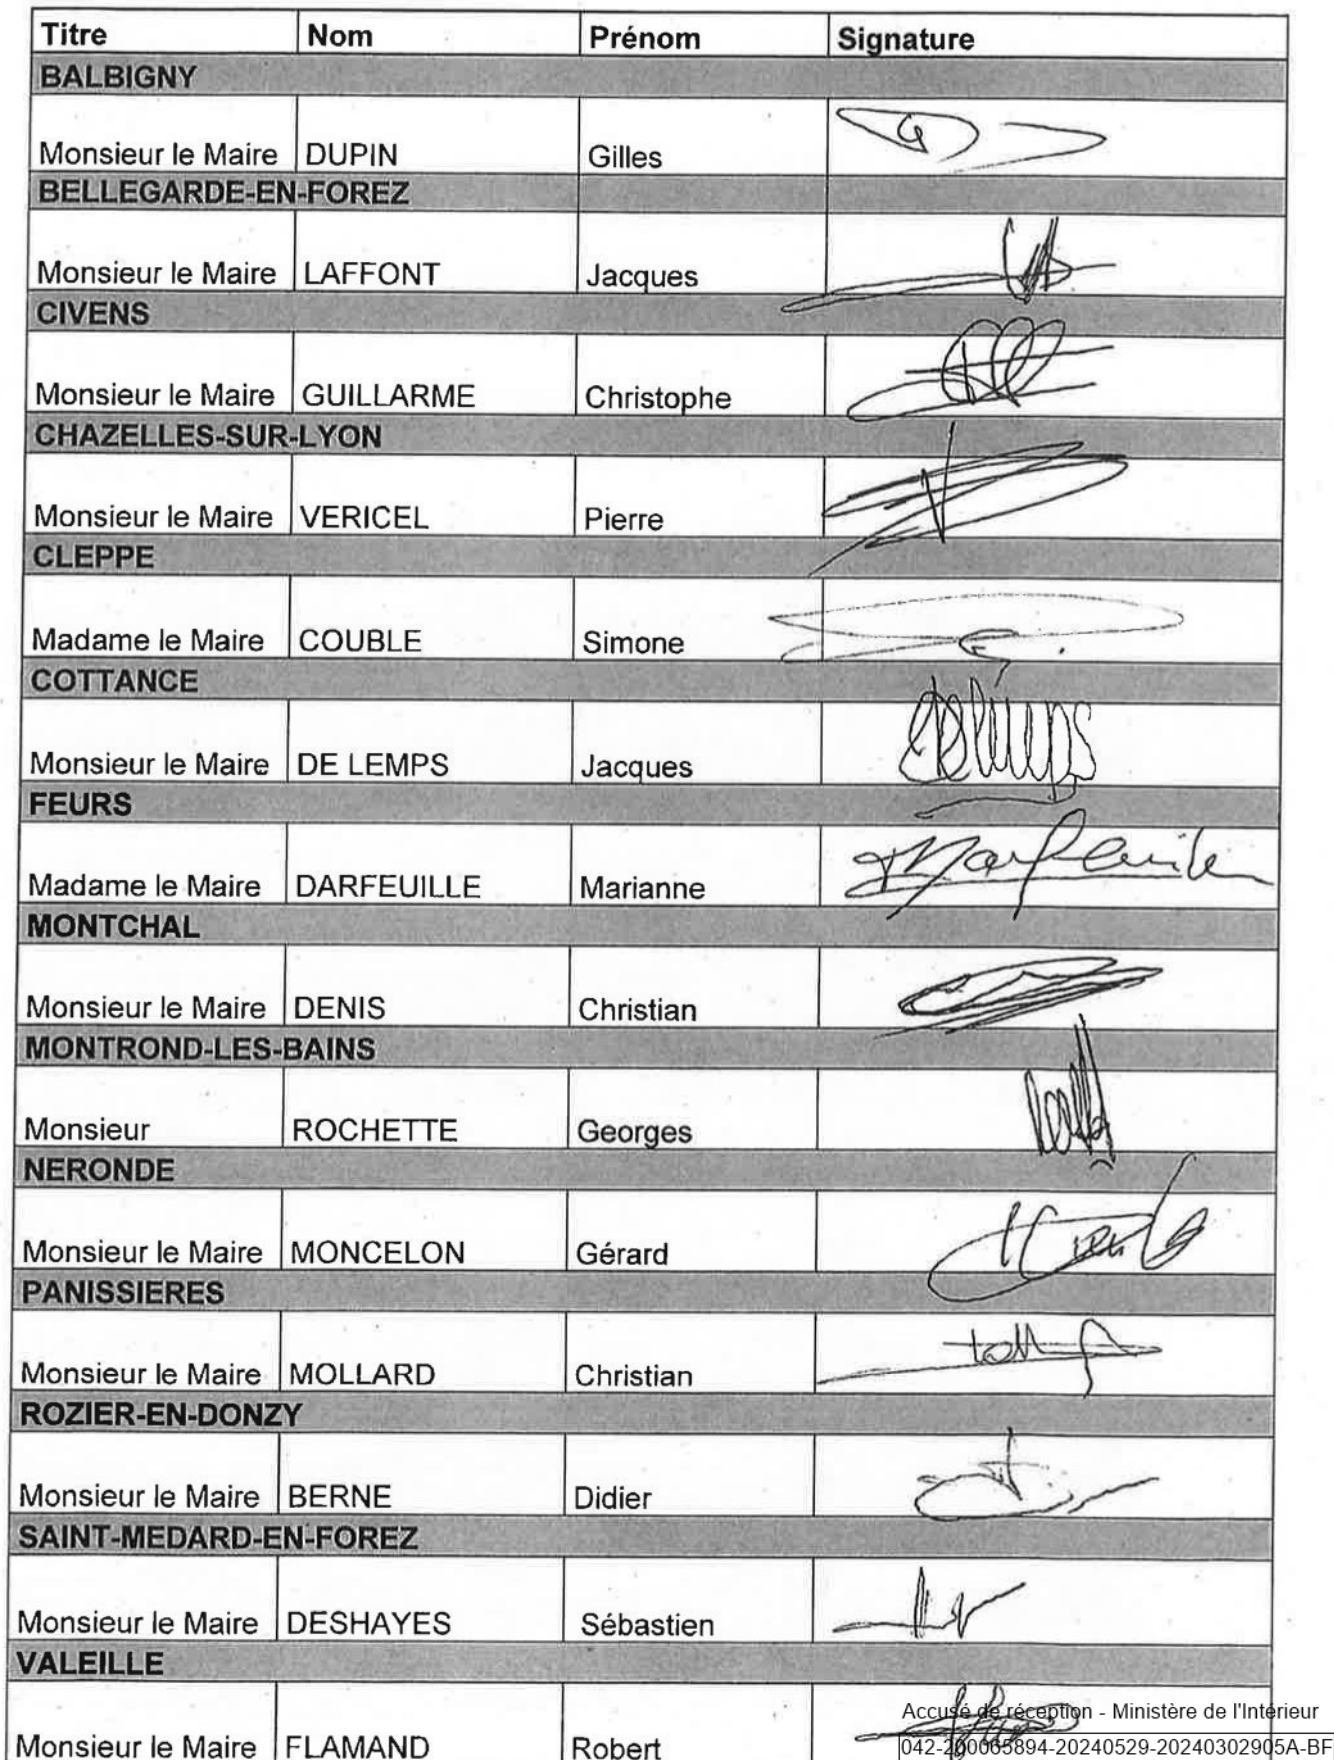 Titre Nom Prénom Signature
BALBIGNY
Monsieur le Maire DUPIN Gilles
BELLEGARDE-EN-FOREZ
Monsieur le Maire LAFFONT Jacques
CIVENS
Monsieur le Maire GUILLARME Christophe
CHAZELLES-SUR-LYON
Monsieur le Maire VERICEL Pierre
CLEPPE
Madame le Maire COUBLE Simone
COTTANCE
Monsieur le Maire DE LEMPS Jacques
FEURS
Madame le Maire DARFEUILLE Marianne
MONTCHAL
Monsieur le Maire DENIS Christian
MONTROND-LES-BAINS
Monsieur ROCHETTE Georges
NERONDE
Monsieur le Maire MONCELON Gérard
PANISSIERES
Monsieur le Maire MOLLARD Christian
ROZIER-EN-DONZY
Monsieur le Maire BERNE Didier
SAINT-MEDARD-EN-FOREZ
Monsieur le Maire DESHAYES Sébastien
VALEILLE
Accusé de réception - Ministère de l'Intérieur
Monsieur le Maire FLAMAND Robert 042-200065894-20240529-20240302905A-BF